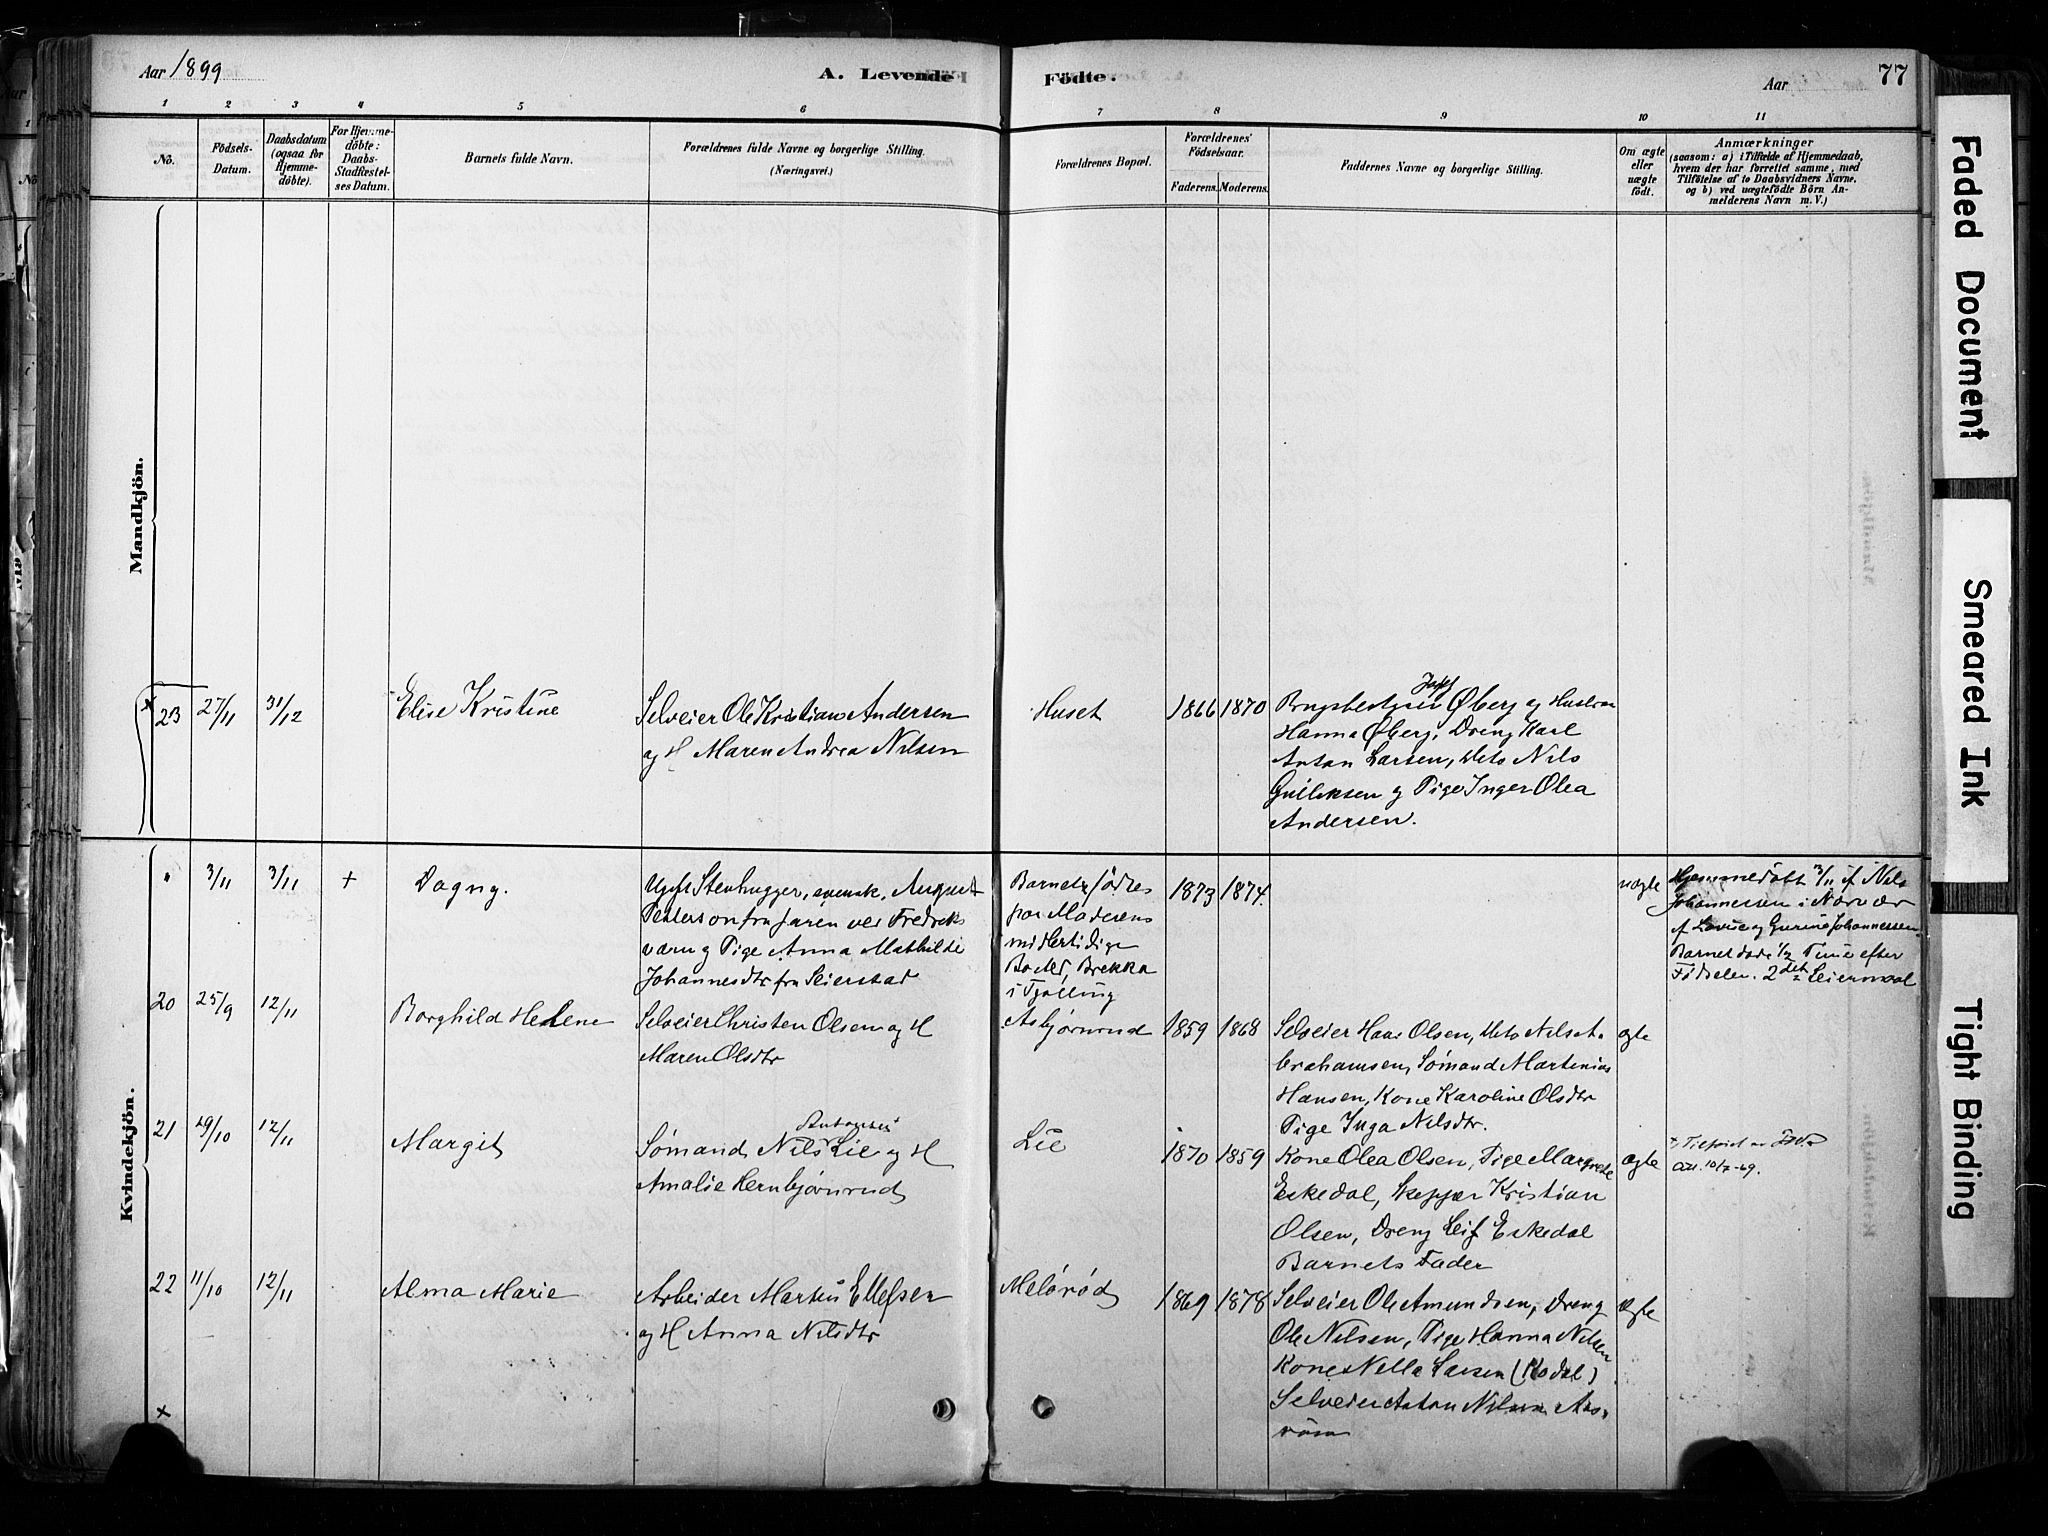 Aar 1899
A. Levende
Födte.
Aar
77
1 2 3 4 5 6 7 8 9 10 11
No.
Födsels-
Datum.
Daabsdatum
(ogsaa for
Hjemme-
döbte).
For Hjemme-
döbte:
Daabs-
Stadfæstel-
ses Datum.
Barnets fulde Navn.
Forældrenes fulde Navne og borgerlige Stilling.
(Næringsvei.)
Forældrenes Bopæl.
Forældrenes'
Födselsaar.
Faderens. Moderens.
Faddernes Navne og borgerlige Stilling.
Om ægte
eller
uægte
födt.
Anmærkninger
(saasom: a) i Tilfælde af Hjemmedaab,
hvem der har forrettet samme, med
Tilföielse af to Daabsvidners Navne,
og b) ved uægtefödte Börn An-
melderens Navn m. V.)
Mandkjön.
23 27/11 31/12
Elise Kristine
Selveier Ole Kristian Andersen
og H Maren Andrea Nilsen
Huset
1866 1870
Josef
Brugsbestyrer Øberg og Hustru
Hanna Øberg, Dreng Karl
Anton Larsen, dito Nils
Gulliksen og Pige Inger Olea
Andersen.
Kvindekjön.
3/11 3/11 +
Dagny.
Ugift Stenhugger, svensk, August
Petterson fra Jaren ved Fredriks
værn og Pige Anna Mathilde
Johannesdtr fra Seierstad
Barnet fødtes
paa Moderens
midlertidige
Bosted, Brekka
i Tjølling
1873 1874.
uægte
Hjemmedøbt 3/11 af Nils
Johannessen i Nærvær
af Lovise og Gurine Johannessen.
Barnet døde 1/2 Time efter
Fødselen. 2det Leiermaal
20 25/9 12/11
Borghild Helene
Selveier Christen Olsen og H
Maren Olsdtr
Asbjørnrød
1859 1868
Selveier Hans Olsen, dito Nils A-
brahamsen, Sømand Martinius
Hansen, Kone Karoline Olsdtr
Pige Inga Nilsdtr.
ægte
21 29/10 12/11
Margit
Antonsen
Sømand Nils Lie og H
Amalie Hernbjørnrud
Lie
1870 1859
Kone Olea Olsen, Pige Margrete
Eskedal, Skipper Kristian
Olsen, Dreng Leif Eskedal
Barnets Fader
ægte
10/7-69.
22 11/10 12/11
Alma Marie
Arbeider Martin Ellefsen
og H Anna Nilsdtr
Meløsrød
1869 1878
Selveier Ole Amundsen, Dreng
Ole Nilsen, Pige Hanna Nilsen
Kone Nella Larsen (Kodal)
Selveier Anton Nilsen Aas-
ægte
+
Faded Document
Smeared Ink
Tight Binding